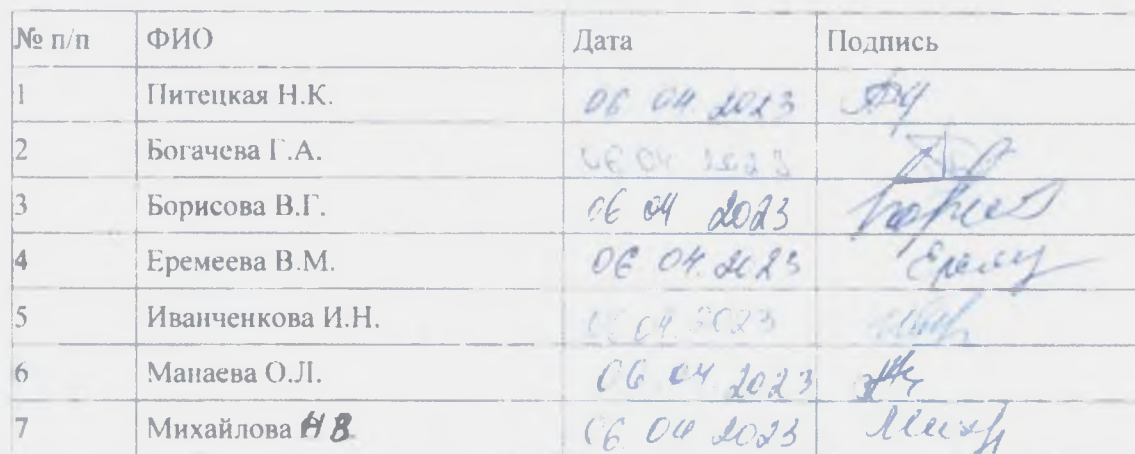 № п/п ФИО Дата Подпись
1 Питецкая Н.К. 06 04 2023
2 Богачева Г.А. 06 04 2023
3 Борисова В.Г. 06 04 2023
4 Еремеева В.М. 06 04. 2023
5 Иванченкова И.Н. 06 04. 2023
6 Манаева О.Л. 06 04 2023
7 Михайлова Н В 06 04 2023